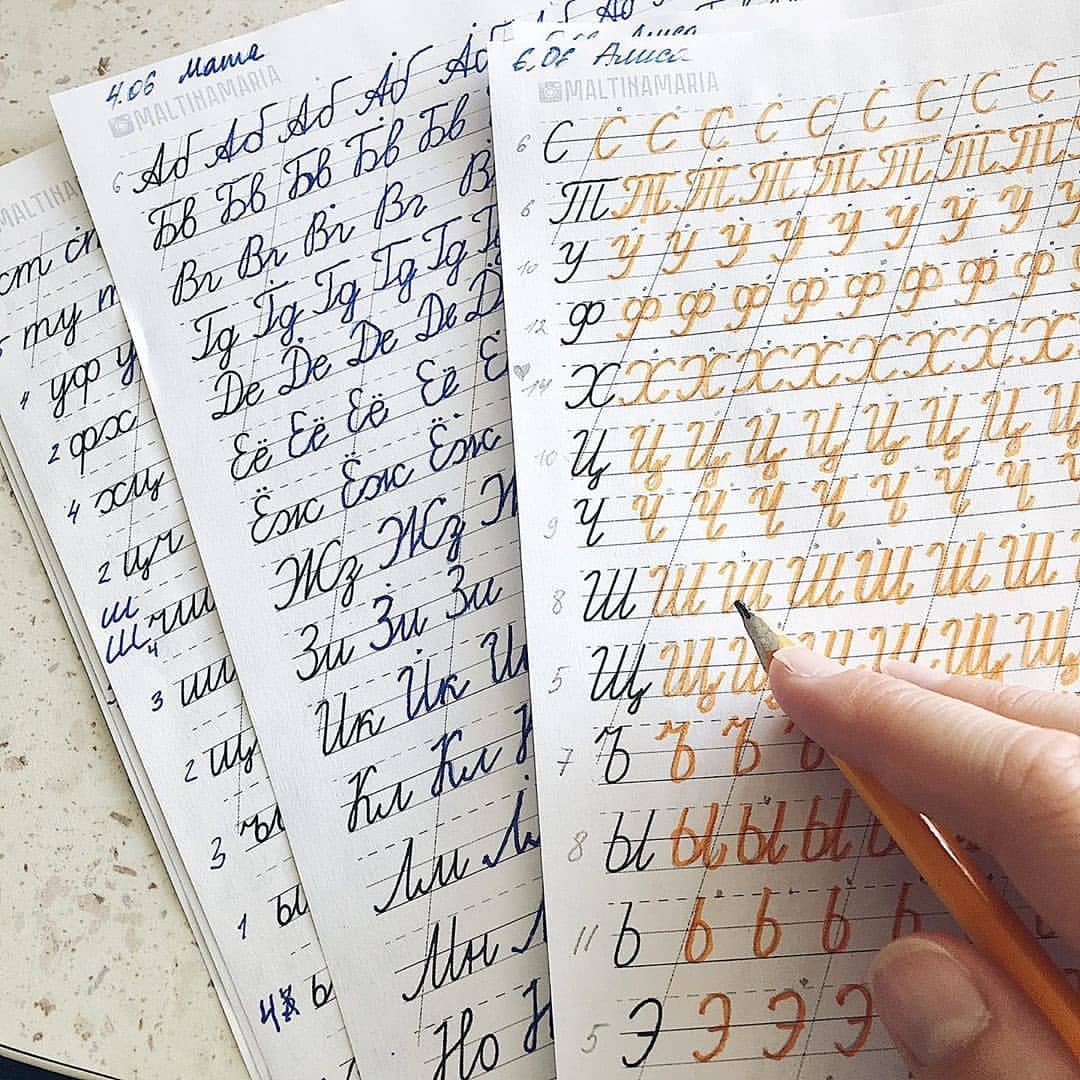 MALTINA
ст
ту
4 уф у
2 фх
4 хц
2 цч
ш
Ш 4 чш
3
2
3 ъы
1 ы
4 ь
4.06 Маша
MALTINAMARIA
6 Аб Аб Аб Аб Аб
Бв Бв Бв Бв Бв
Вг Вг Вг Вг В
Гд Гд Гд Гд Гд
Де Де Де Де Д
Её Её Её Её Ё
Ёж Ёж Ёж
Жз Жз
Зи Зи Зи
Ик Ик И
Кл Кл
Лм Л
Мн
Но Н
6.06 Алиса
MALTINAMARIA
6 С С С С С С С С С С
8 Т Т Т Т Т Т Т Т
10 У У У У У У У У У У
12 Ф Ф Ф Ф Ф Ф Ф Ф Ф
14 Х Х Х Х Х Х Х Х Х
10 Ц Ц Ц Ц Ц Ц Ц Ц Ц
9 Ч Ч Ч Ч Ч Ч Ч Ч Ч
8 Ш Ш Ш Ш Ш Ш Ш
5 Щ Щ Щ Щ Щ Щ Щ
7 Ъ Ъ Ъ Ъ
8 Ы Ы Ы Ы
11 Ь Ь Ь Ь Ь
5 Э Э Э Э